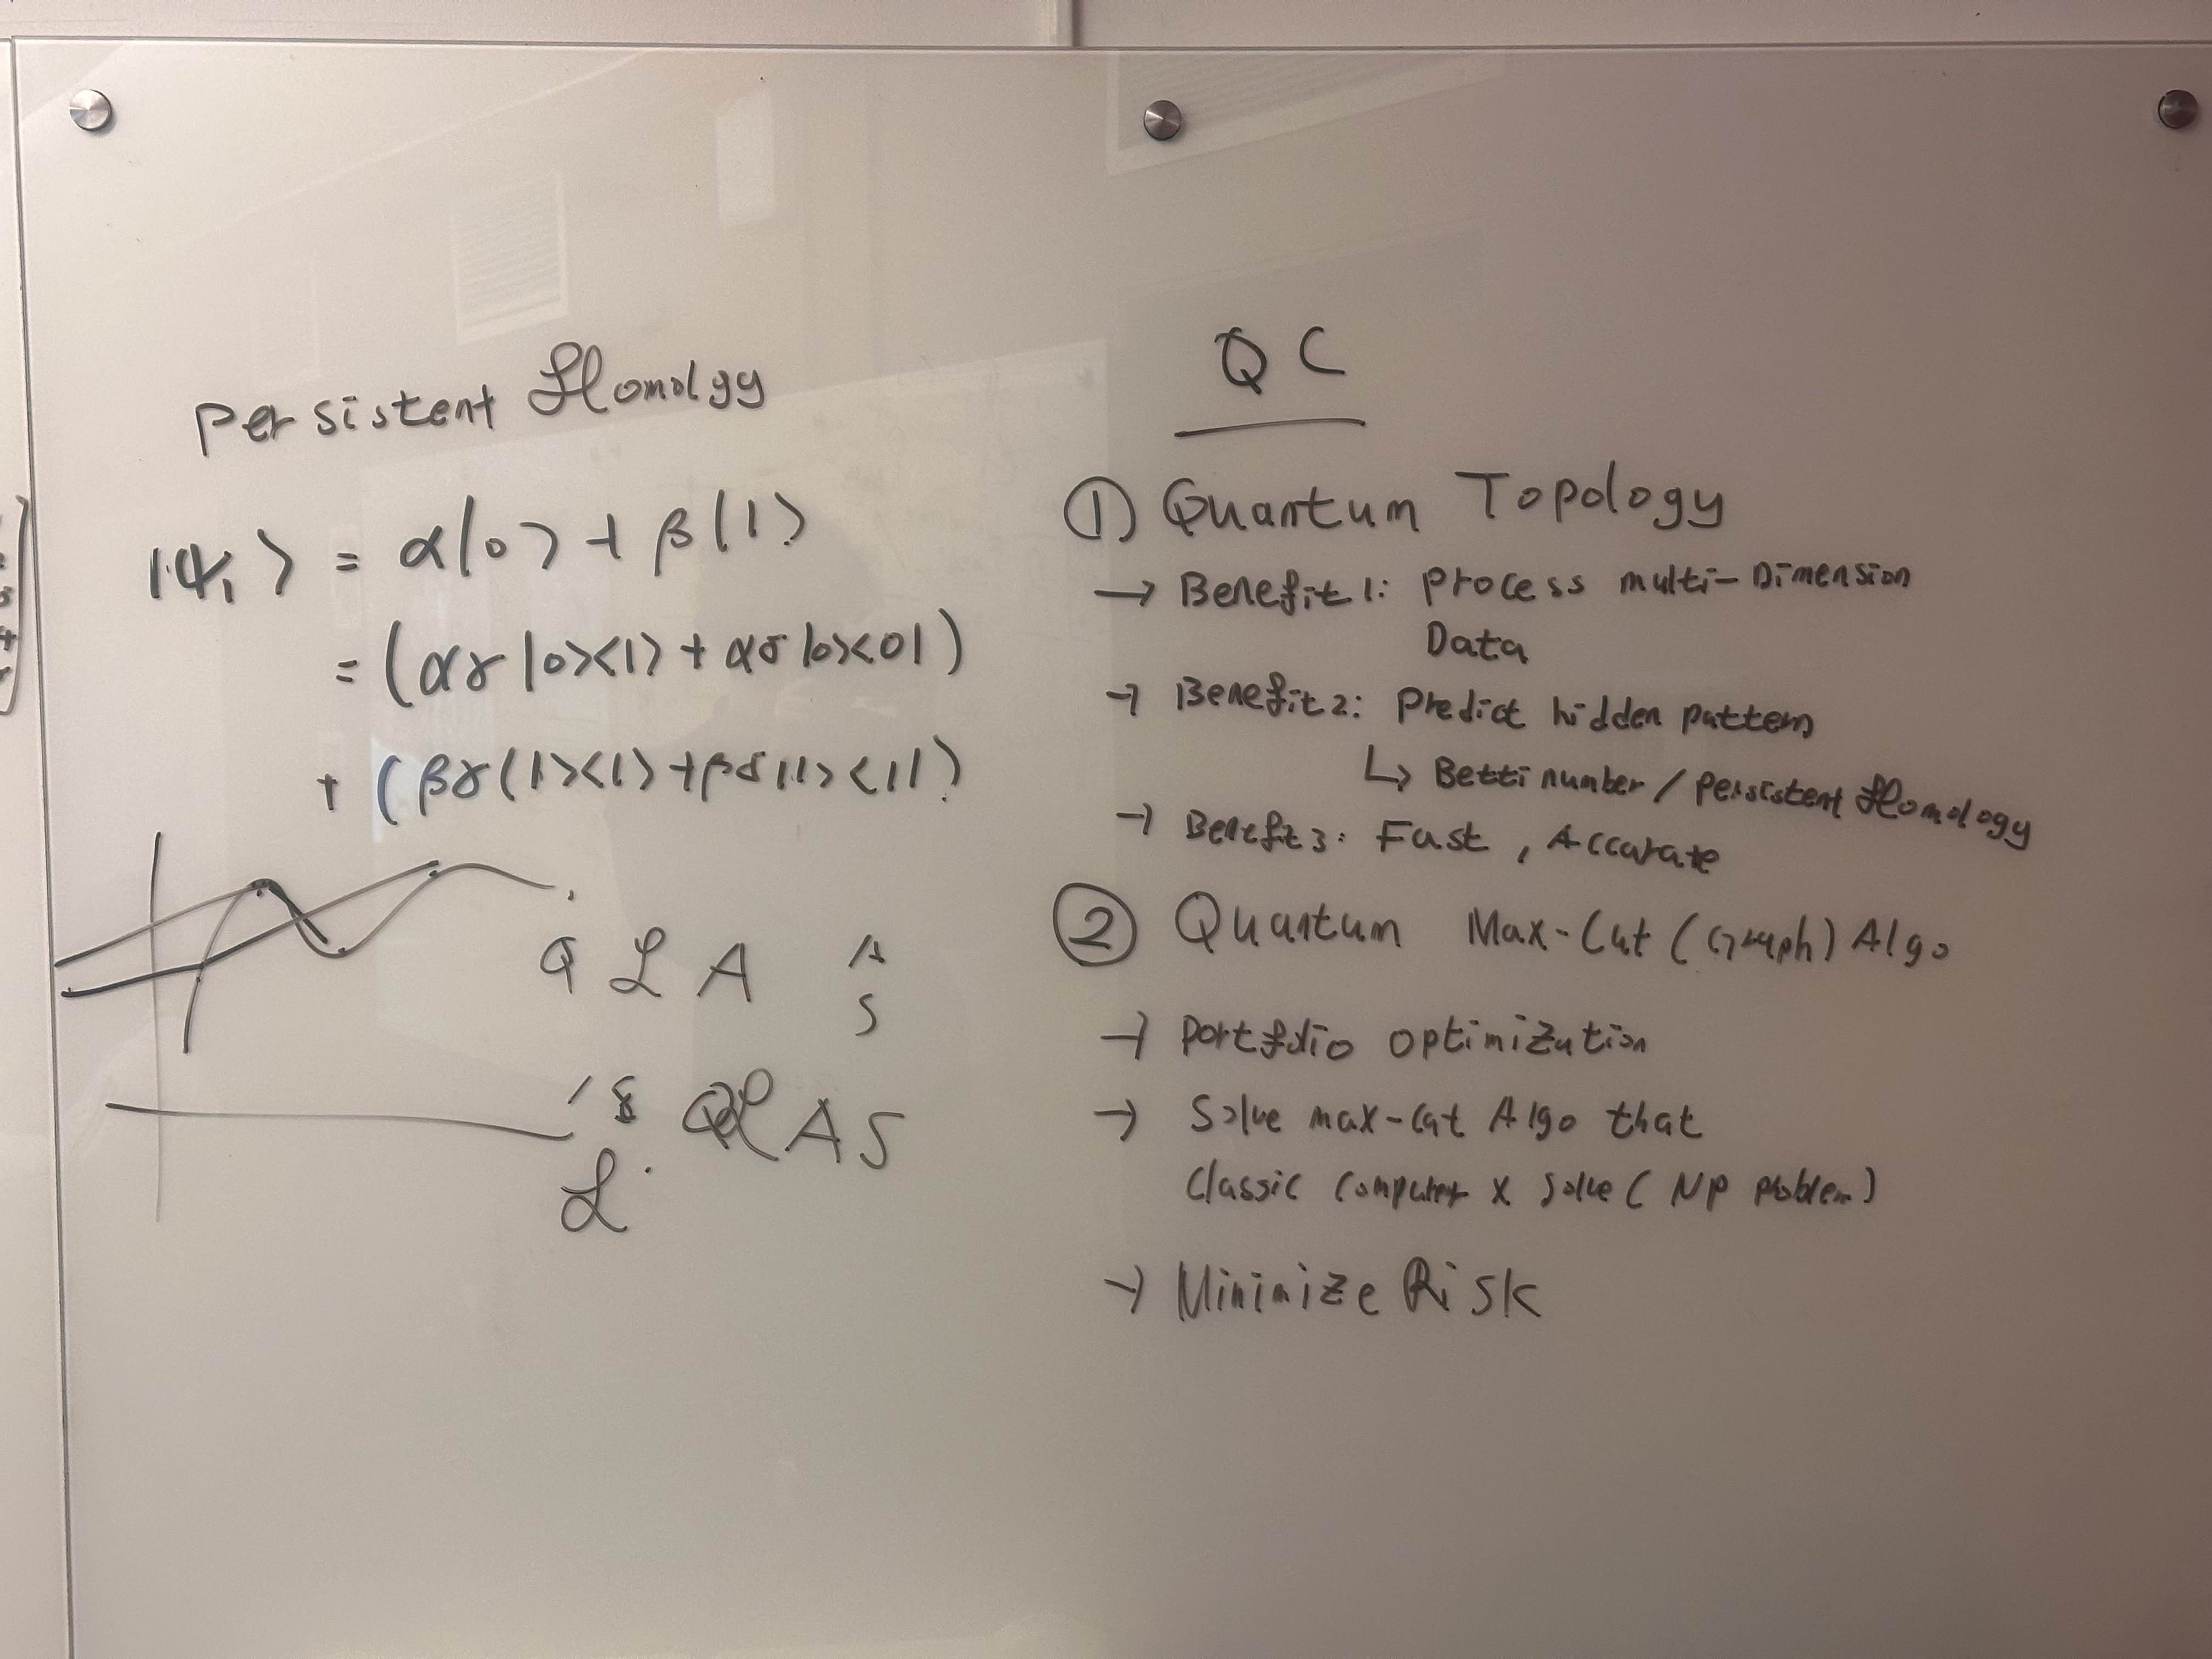 Persistent Homolgy
|ψ₁> = α|0> + β|1>
= (αγ|0><1> + αδ|0><01)
+ (βγ(1><1) + βδ|1><11)
Q L A
A
S
QLAS
L
QC
① Quantum Topology
→ Benefit 1: Process multi-Dimension
Data
→ Benefit 2: Predict hidden pattern
↳ Betti number / Persistent Homology
→ Benefit 3: Fast, Accarate
② Quantum Max-Cut (Graph) Algo
→ Portfolio optimization
→ Solve max-cut Algo that
Classic Computer x Solve (NP problem)
→ Minimize Risk